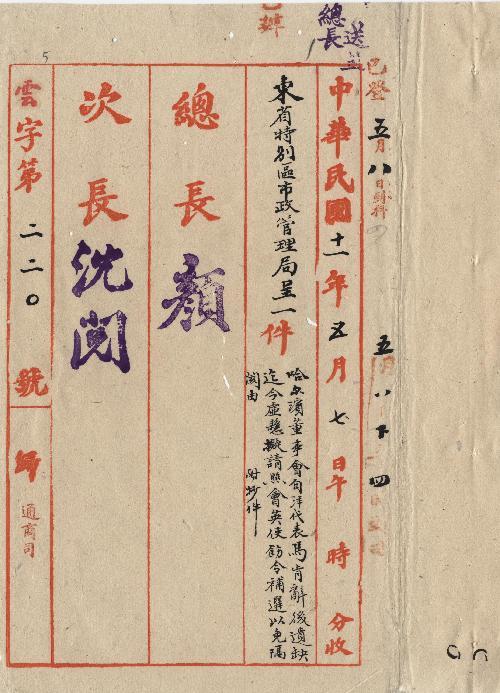 送
總長
已登
五月八日
五月八下四
中華民國十一年五月七日午時分收
東省特別區市政管理局呈一件
哈尔濱董事會自洋代表馬肯辭後遺缺
迄今虛懸擬請照會英使飭令補選以免隔
閡由 附抄件
總長顏
次長沈閱
雲字第二二〇號
歸通商司
5